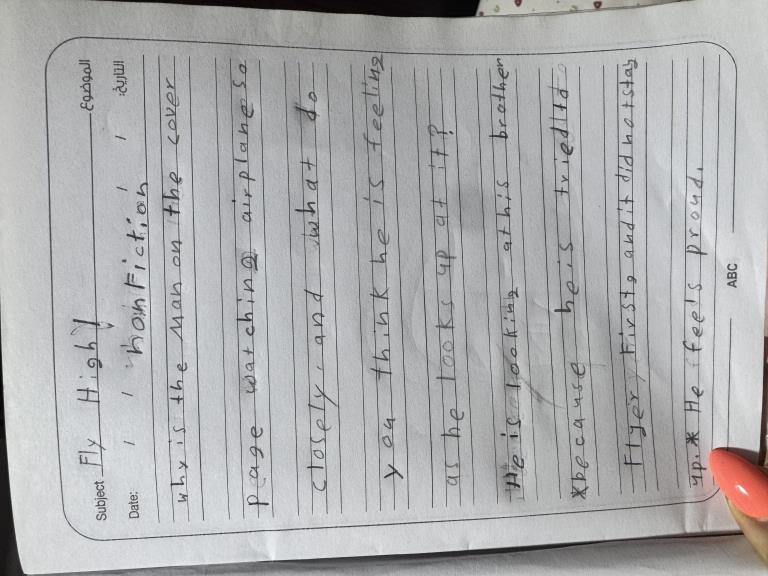 Subject Fly High! الموضوع
Date: / / nonFiction / / التاريخ:
why is the man on the cover
page watching airplane so
closely, and what do
you think he is feeling
as he looks up at it?
He is looking at his brother
*because he is tried Itd
Flyer, First, and it did not stay
up.* He feels proud.
ABC